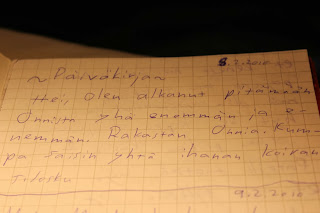 8.2.2010
~Päiväkirja~
Hei, olen alkanut pitämään
Onnista yhä enemmän ja e-
nemmän. Rakastan Onnia. Kun-
pa saisin yhtä ihanan koiran
9.2.2010